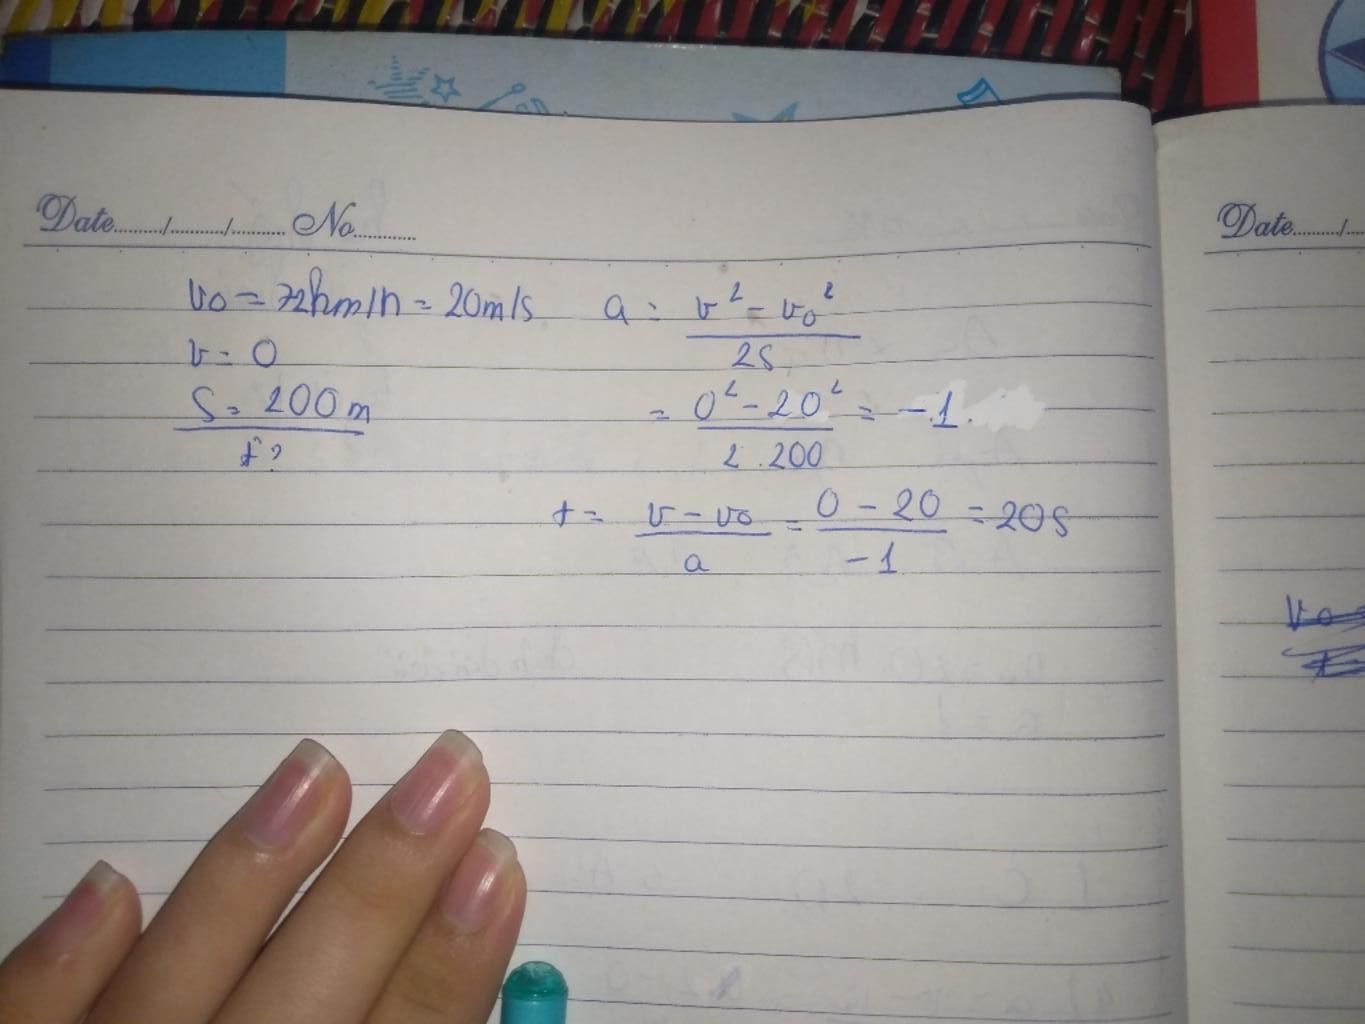 Date........../........../.......... No............
Date........../....
v₀ = 72km/h = 20m/s
v = 0
S = 200m
t?
a = v² - v₀² / 2S
= 0² - 20² / 2.200 = -1.
t = v - v₀ / a = 0 - 20 / -1 = 20s